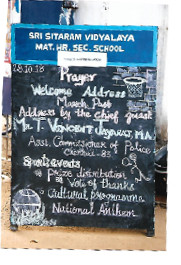 SRI SITARAM VIDYALAYA
MAT. HR. SEC. SCHOOL
Prayer
Welcome Address
March Past
Address by the chief guest
T. VINCENT JAYARAJ, M.A.
Asst. Commissioner of Police
Chennai-83
Sports events
Prize distribution
Vote of thanks
Cultural programme
National Anthem